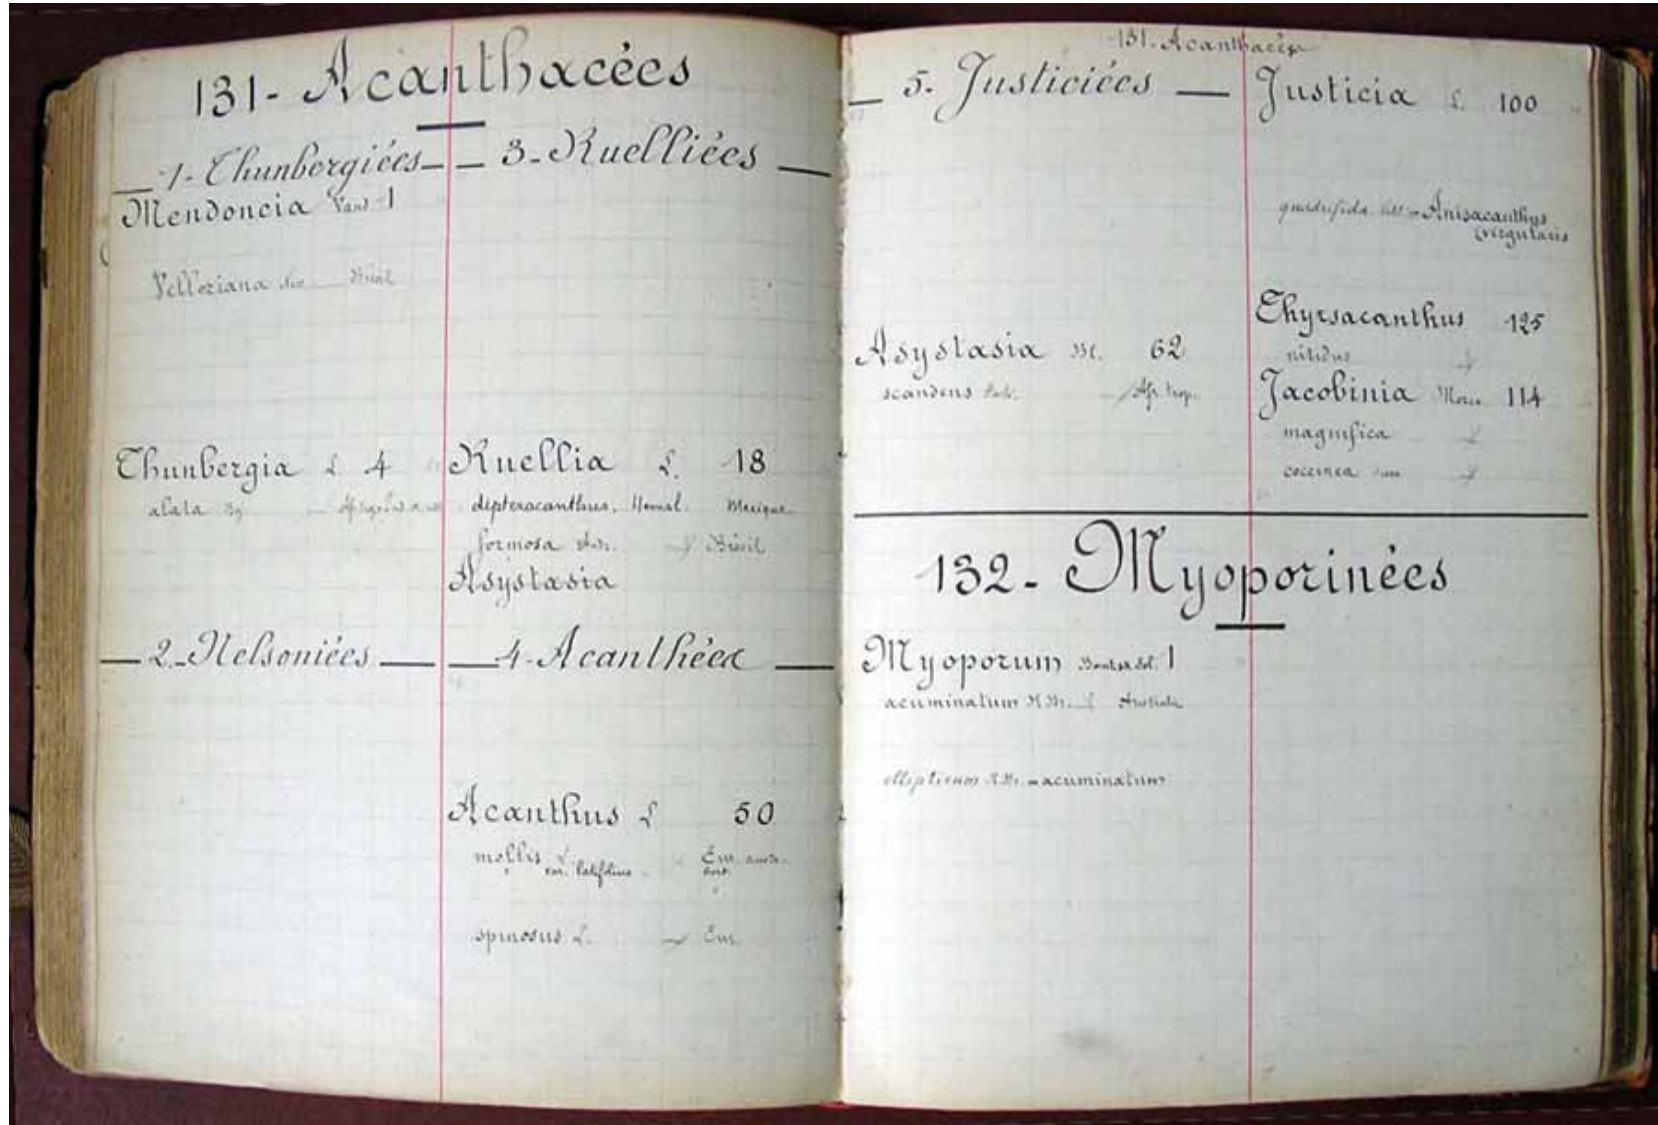 131- Acanthacées
1- Thunbergiées
Mendoncia Vand 1
Velloziana Brésil
Thunbergia L 4
alata
2. Nelsoniées
3- Ruelliées
Ruellia L. 18
dipteracanthus. Hemsl. Mexique
formosa Andr. Brésil
Asystasia
4- Acanthées
Acanthus L 50
mollis L. Eur. austr.
var. latifolius
spinosus L. Eur.
131- Acanthacées
5- Justiciées
Asystasia Bl. 62
scandens Afr. trop.
Justicia L. 100
quadrifida = Anisacanthus
virgularis
Thyrsacanthus 125
nitidus
Jacobinia 114
magnifica
coccinea
132- Myoporinées
Myoporum Banks. Sol. 1
acuminatum R. Br. Australie
ellipticum R. Br. = acuminatum